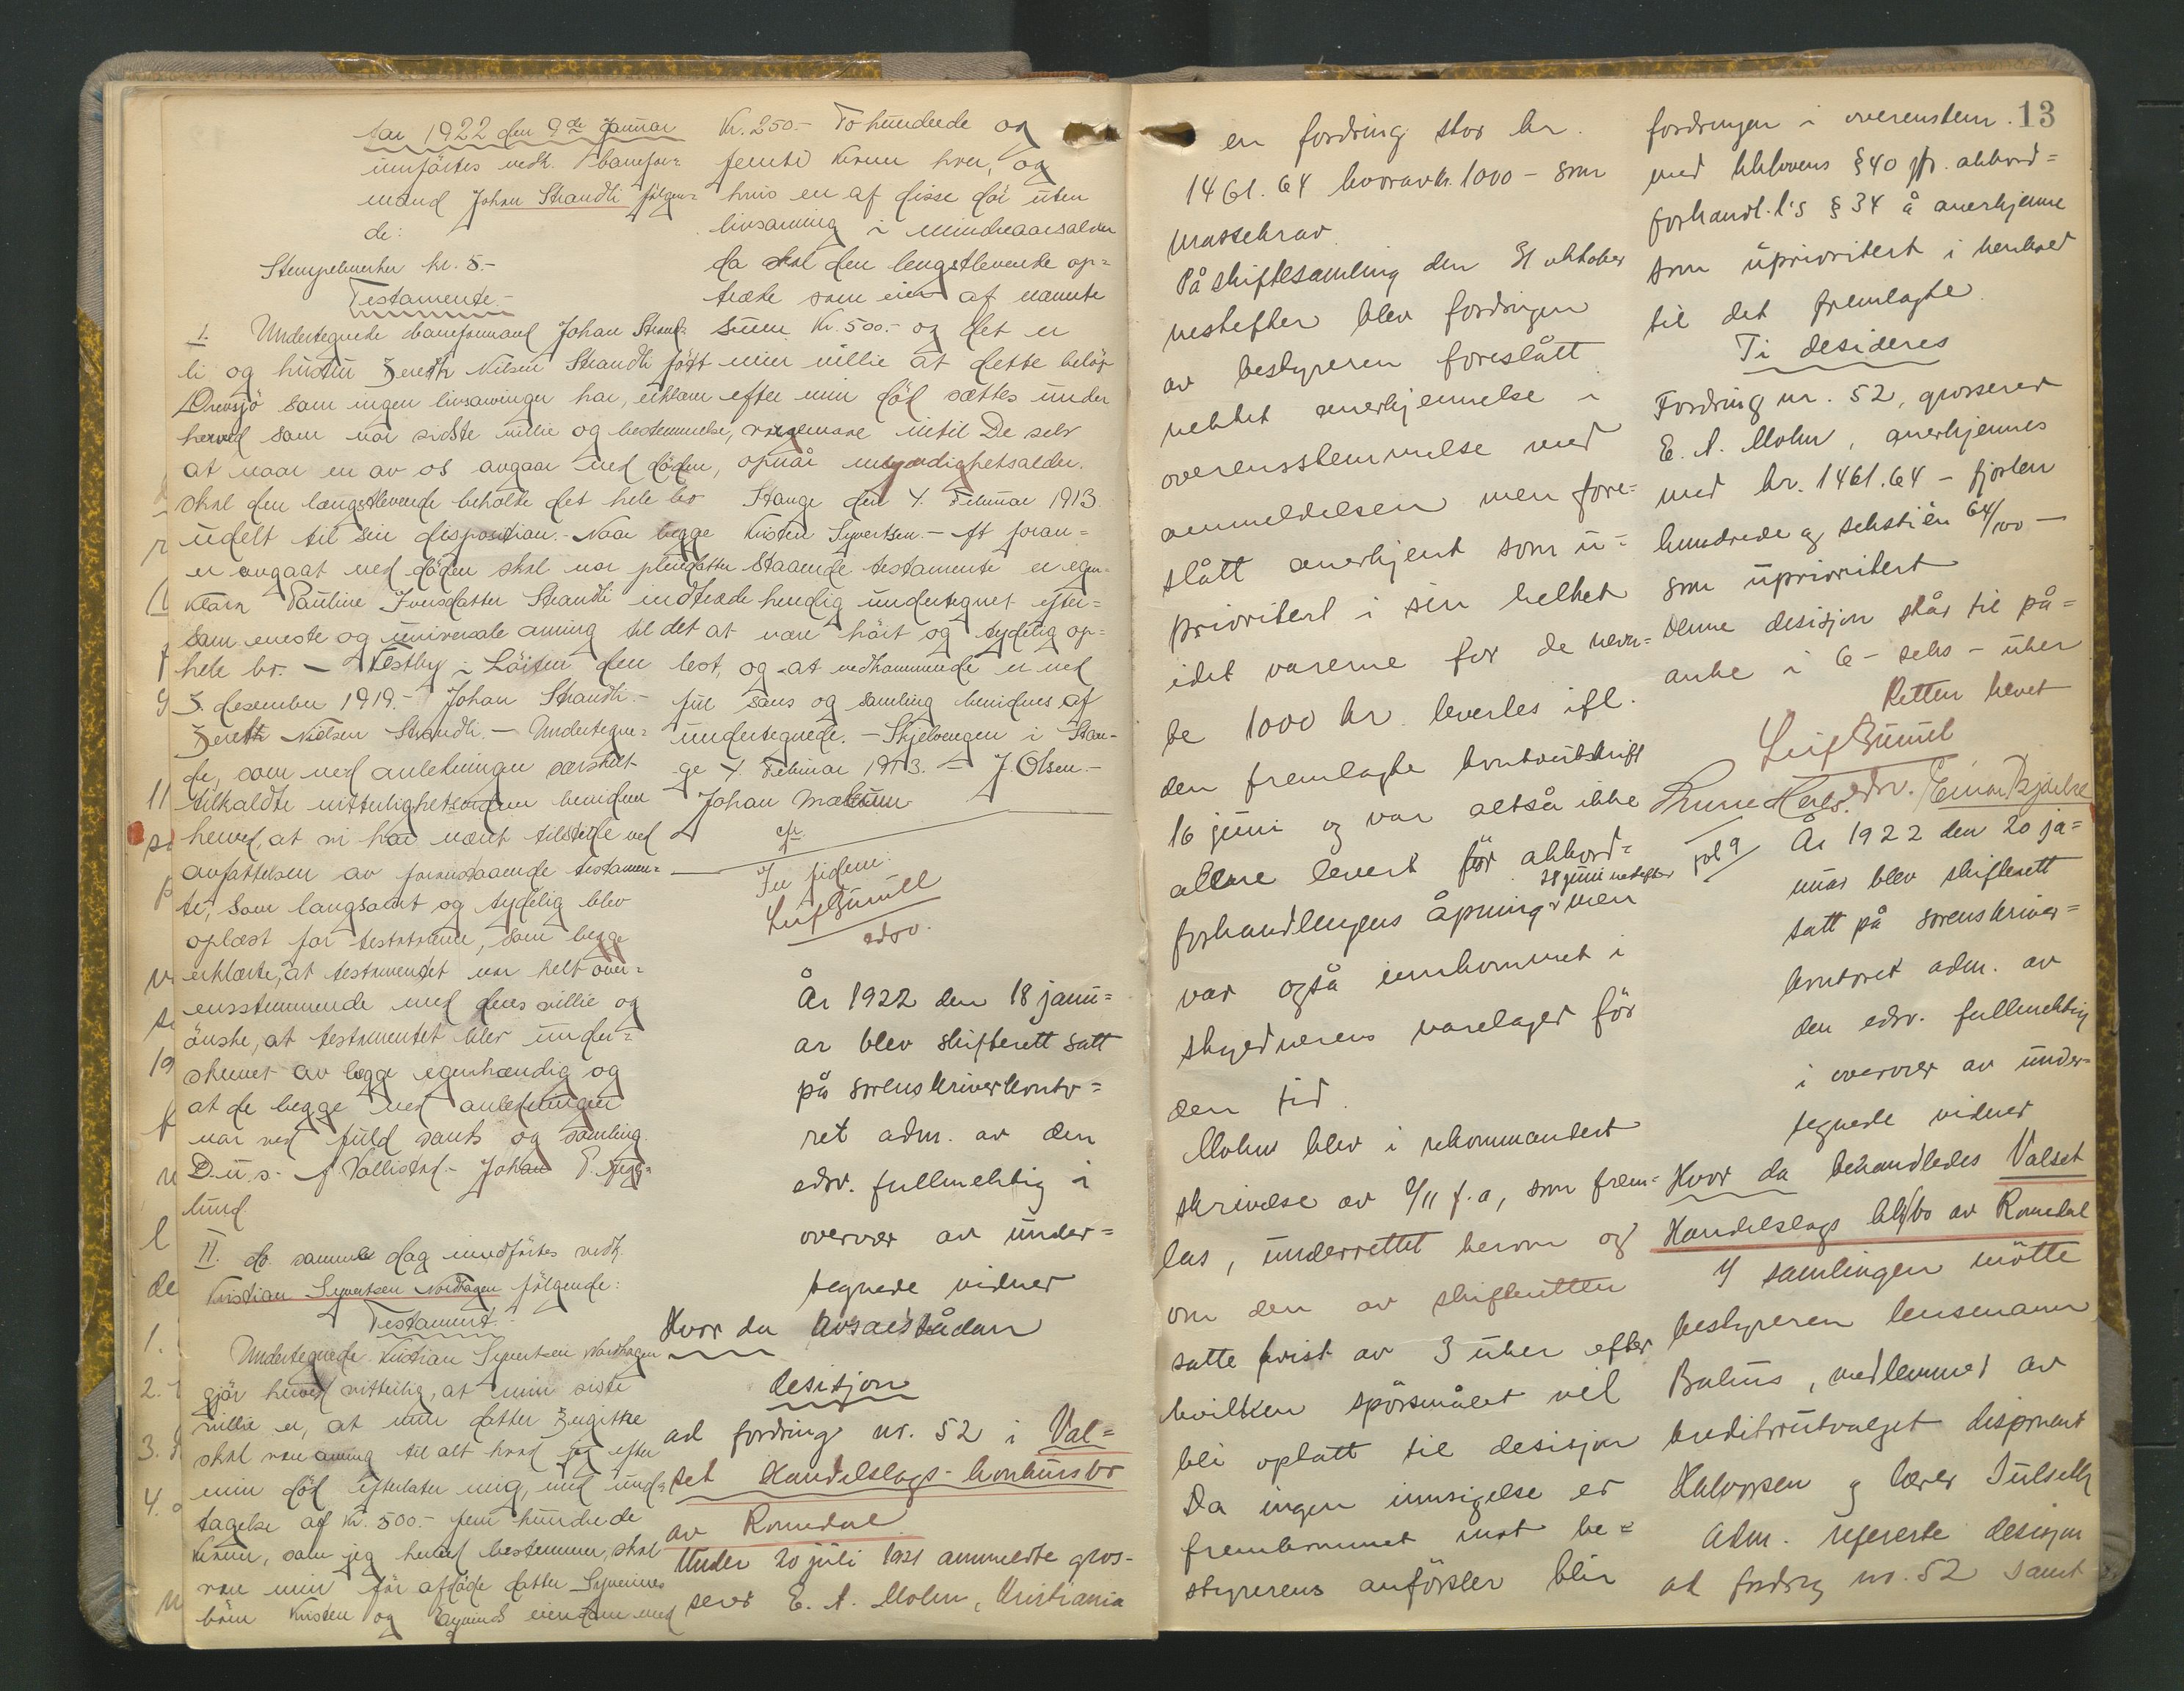 Aar 1922 den 9de Januar
innførtes vedk. baneformand
mand Johan Strandli følgen=
de:
Stempelmerker kr. 5.-
Testamente.-
1. Undertegnede baneformand Johan Strand=
li og hustru Nilsen Strandli født
som ingen livsarvinger har, erklærer
herved som vor sidste villie og bestemmelse,
at naar en av os avgaar ved døden,
skal den længstlevende beholde det hele bo
udelt til sin disposition.- Naar begge
er avgaat ved døden skal vor pleiedatter
Klara Pauline Iversdatter Strandli indtræde
som eneste og universale arving til det
hele bo. - Vestby i Løiten den
3. desember 1919.- Johan Strandli.-
Nilsen Strandli.- Undertegne=
de, som ved anledningen særskilt
tilkaldte vitterlighetsvidner bevidner
herved, at vi har været tilstede ved
avfattelsen av foranstaaende testamen=
te, som langsomt og tydelig blev
oplæst for testatorerne, som begge
erklærte, at testamentet var helt over=
ensstemmende med deres villie og
ønske, at testamentet blev under=
skrevet av begge egenhændig og
at de begge ved anledningen
var ved fuld sands og samling.
D.u.s. Johan P.
lund
II. do. samme dag innførtes vedk.
Kristian Syvertsen Nordhagen følgende:
Testament.-
Undertegnede Kristian Syvertsen Nordhagen
gjør herved vitterlig, at min siste
villie er, at min datter
skal være arving til alt hvad jeg efter
min død efterlater mig, med und=
tagelse af kr. 500.- fem hundrede
kroner, som jeg herved bestemmer, skal
være min før afdøde datter Syverines
børn Kristen og eiendom med
Kr. 250.- To hundrede og
femti kroner hver, og
hvis en af disse dør uten
livsarving i mindreaarsalder
da skal den lengstlevende op=
træde som eier af nævnte
sum Kr. 500.- og det er
min villie at dette beløp
efter min død sættes under
værgemaal intil De selv
opnår myndighetsalder.
Stange den 4. Februar 1913
Kristen Syvertsen.- At foran=
staaende testamente er egen=
hendig undertegnet efter=
at være hørt og tydelig op=
lest, og at vedkommende er ved
full sans og samling bevidnes af
undertegnede. - Skjelvengen i Stan-
ge 4. Februar 1913. - J. Olsen.-
Johan Mælum
In fidem:
Leif Bunull
edsv.
År 1922 den 18 janu=
ar blev skifterett satt
på sorenskriverkonto=
ret adm. av den
edsv. fullmektig i
overvær av under=
tegnede vidner
Hvor da avsaes sådan
desisjon
ad fordring nr. 52 i Val=
set Handelslags konkursbo
av Romedal
Under 20 juli 1921 anmeldte gros-
serer E. A. Mohn, Kristiania
13
en fordring stor kr.
1461.64 hvorav kr. 1000 - som
massekrav.
På skiftesamling den 31 oktober
nestefter blev fordringen
av bestyreren foreslått
nektet anerkjennelse i
overensstemmelse med
anmeldelsen men fore=
slått anerkjent som u=
prioritert i sin helhet
idet varerne for de nevn=
te 1000 kr. levertes ifl.
den fremlagte kontoutskrift
16 juni og var altså ikke
allene levert før akkord=
28 juni nestefter
forhandlingens åpning men
var også innkommet i
skyldnerens varelager før
den tid.
Mohn blev i rekommandert
skrivelse av 9/11 f.a, som frem=
las, underrettet herom og
om den av skifteretten
satte frist av 3 uker efter
hvilken spørsmålet vil
bli optatt til desisjon
Da ingen innsigelse er
fremkommet mot be=
styrerens anførsler blir
fordringen i overenstem.
med kklovens § 40 jfr. akkord=
forhandl.l's § 34 å anerkjenne
som uprioritert i henhold
til det fremlagte.
Ti desideres
Fordring nr. 52, grosserer
E. A. Mohn, anerkjennes
med kr. 1461.64 - fjorten
hundrede og sekstién 64/100 -
som uprioritert
Denne desisjon står til på=
anke i 6 - seks - uker
Retten hevet
Leif Bunull
edsv. Einar Bjørke
fol 9
År 1922 den 20 ja=
nuar blev skifterett
satt på sorenskriver=
kontoret adm. av
den edsv. fullmektig
i overvær av under=
tegnede vidner
Hvor da behandledes Valset
Handelslags kk/bo av Romedal
I samlingen møtte
bestyreren lensmann
medlemmer av
kreditorutvalget disponent
Halvorsen og lærer
Adm. refererte desisjon
ad fordring nr. 52 samt